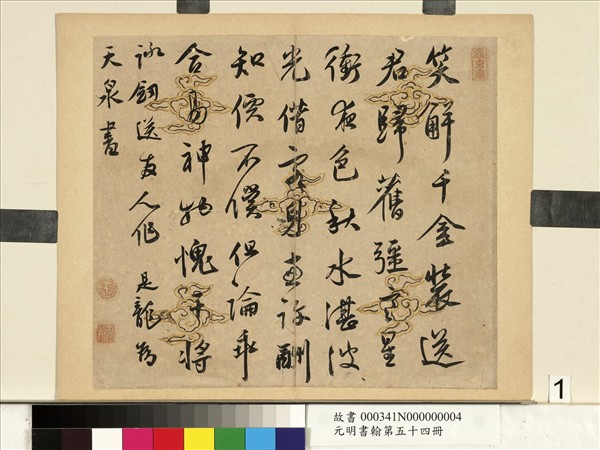 笑解千金裝送
君歸舊疆寒星
衝夜色秋水湛波
光借身許酬
知價不償但論乖
合易神物愧干將
詠劍送友人作 是龍為
天泉書
1
故書 000341N000000004
元明書翰第五十四冊